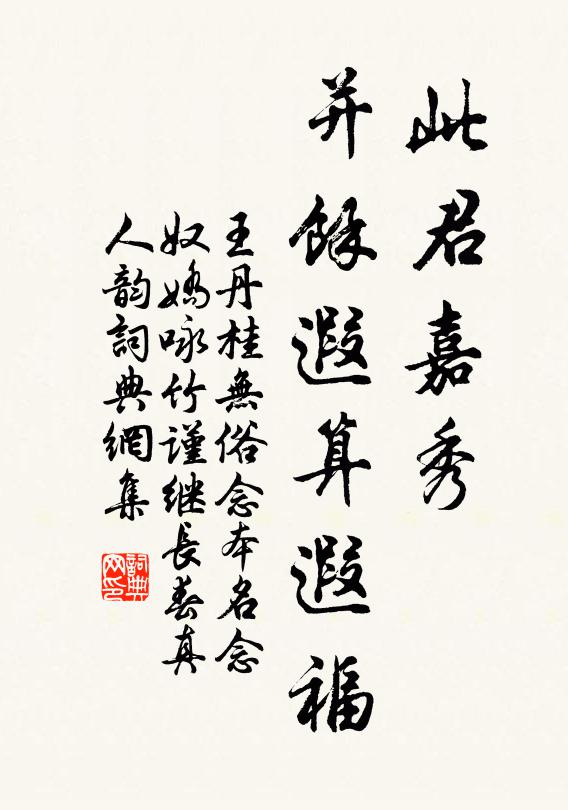 此君嘉秀
并餘遐算遐福
王丹桂無俗念本名念
奴嬌咏竹謹继長春真
人韵詞典網集
詞典网印